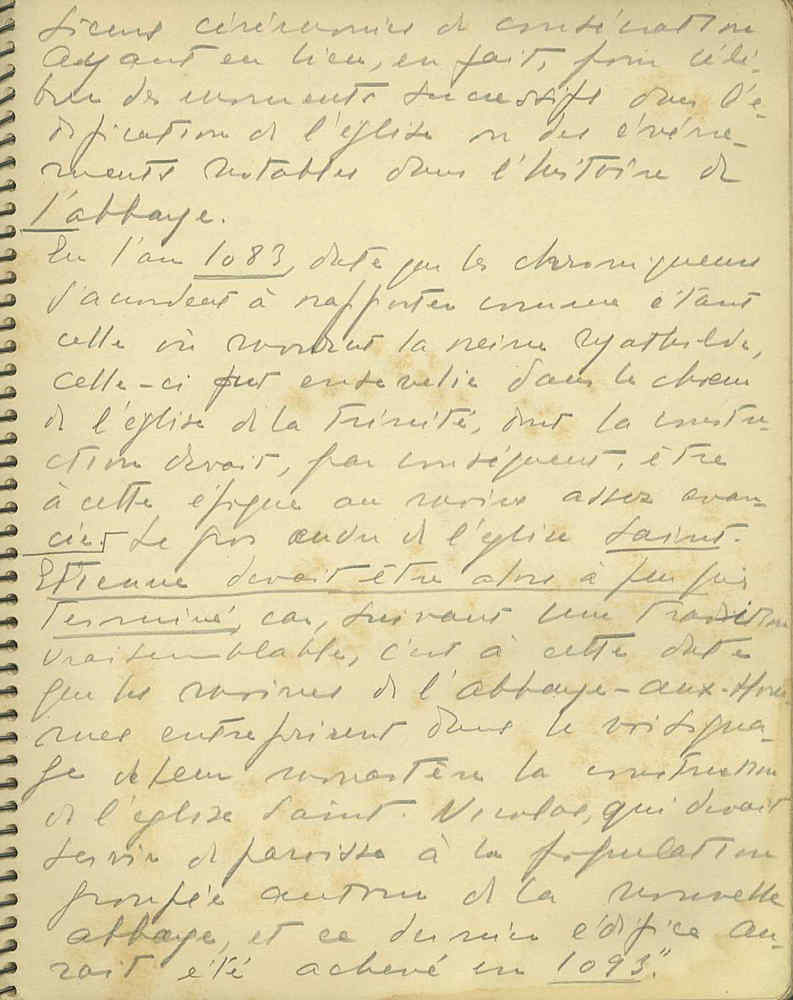 sieurs cérémonies de consécration
ayant eu lieu, en fait, pour célé-
brer des moments successifs dans l'é-
dification de l'église ou des événe-
ments notables dans l'histoire de
l'abbaye.
En l'an 1083, date que les chroniqueurs
s'acordent à rapporter comme étant
celle où mourut la reine Mathilde,
celle-ci fut ensevelie dans le chœur
de l'église de la Trinité, dont la constru-
ction devait, par conséquent, être
à cette époque au moins assez avan-
cée. Le gros œuvre de l'église Saint-
Etienne devait être alors à peu près
terminé, car, suivant une tradition
vraisemblable, c'est à cette date
que les moines de l'abbaye-aux-Hom-
mes entreprirent dans le voisina-
ge de leur monastère la construction
de l'église Saint-Nicolas, qui devait
servir de paroisse à la population
groupée autour de la nouvelle
abbaye, et ce dernier édifice au-
rait été achevé en 1093."